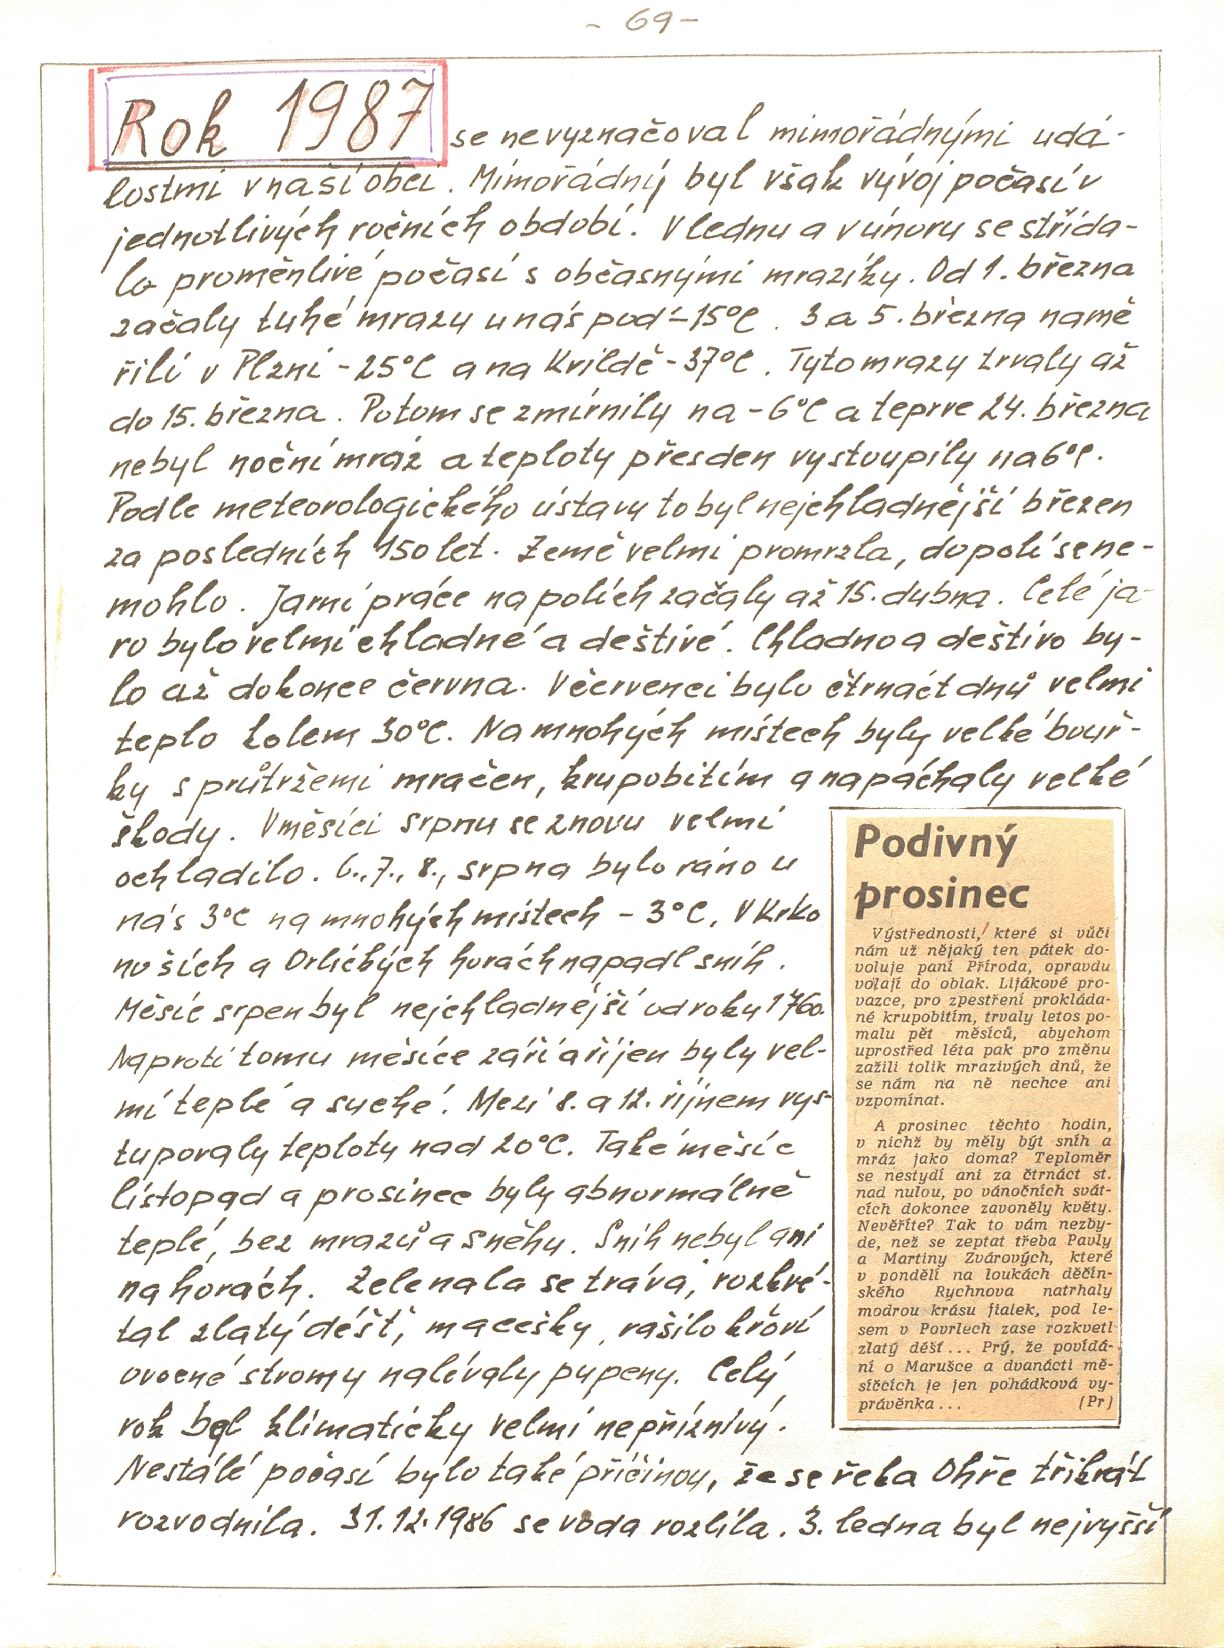 - 69 -
Rok 1987 se nevyznačoval mimořádnými udá-
lostmi v naší obci. Mimořádný byl však vývoj počasí v
jednotlivých ročních období. V lednu a v únoru se střída-
lo proměnlivé počasí s občasnými mrazíky. Od 1. března
začaly tuhé mrazy u nás pod -15°C. 3 a 5. března namě
řili v Plzni -25°C a na Kvildě -37°C. Tyto mrazy trvaly až
do 15. března. Potom se zmírnily na -6°C a teprve 24. března
nebyl noční mráz a teploty přes den vystoupily na 6°C.
Podle meteorologického ústavu to byl nejchladnější březen
za posledních 150 let. Země velmi promrzla, do polí se ne-
mohlo. Jarní práce na polích začaly až 15. dubna. Celé ja-
ro bylo velmi chladné a deštivé. Chladno a deštivo by-
lo až do konce června. V červenci bylo čtrnáct dnů velmi
teplo kolem 30°C. Na mnohých místech byly velké bouř-
ky s průtržemi mračen, krupobitím a napáchaly velké
škody. V měsíci srpnu se znovu velmi
ochladilo. 6., 7., 8., srpna bylo ráno u
nás 3°C na mnohých místech -3°C. V Krko
noších a Orlických horách napadl sníh.
Měsíc srpen byl nejchladnější od roku 1760.
Naproti tomu měsíce září a říjen byly vel-
mi teplé a suché. Mezi 8. a 12. říjnem vys-
tupovaly teploty nad 20°C. Také měsíc
listopad a prosinec byly abnormálně
teplé, bez mrazů a sněhu. Sníh nebyl ani
na horách. Zelenala se tráva, rozkvé-
tal zlatý déšť, macešky, rašilo křoví
ovocné stromy nalévaly pupeny. Celý
rok byl klimaticky velmi nepříznivý.
Nestálé počasí bylo také příčinou, že se řeka Ohře třikrát
rozvodnila. 31.12.1986 se voda rozlila. 3. ledna byl nejvyšší
Podivný
prosinec
Výstřednosti, které si vůči
nám už nějaký ten pátek do-
voluje paní Příroda, opravdu
volají do oblak. Lijákové pro-
vazce, pro zpestření prokláda-
né krupobitím, trvaly letos po-
malu pět měsíců, abychom
uprostřed léta pak pro změnu
zažili tolik mrazivých dnů, že
se nám na ně nechce ani
vzpomínat.
A prosinec těchto hodin,
v nichž by měly být sníh a
mráz jako doma? Teploměr
se nestydí ani za čtrnáct st.
nad nulou, po vánočních svát-
cích dokonce zavoněly květy.
Nevěříte? Tak to vám nezby-
de, než se zeptat třeba Pavly
a Martiny Zvárových, které
v pondělí na loukách děčín-
ského Rychnova natrhaly
modrou krásu fialek, pod le-
sem v Povrlech zase rozkvetl
zlatý déšť... Prý, že povídá-
ní o Marušce a dvanácti mě-
síčcích je jen pohádková vy-
právěnka... (Pr)